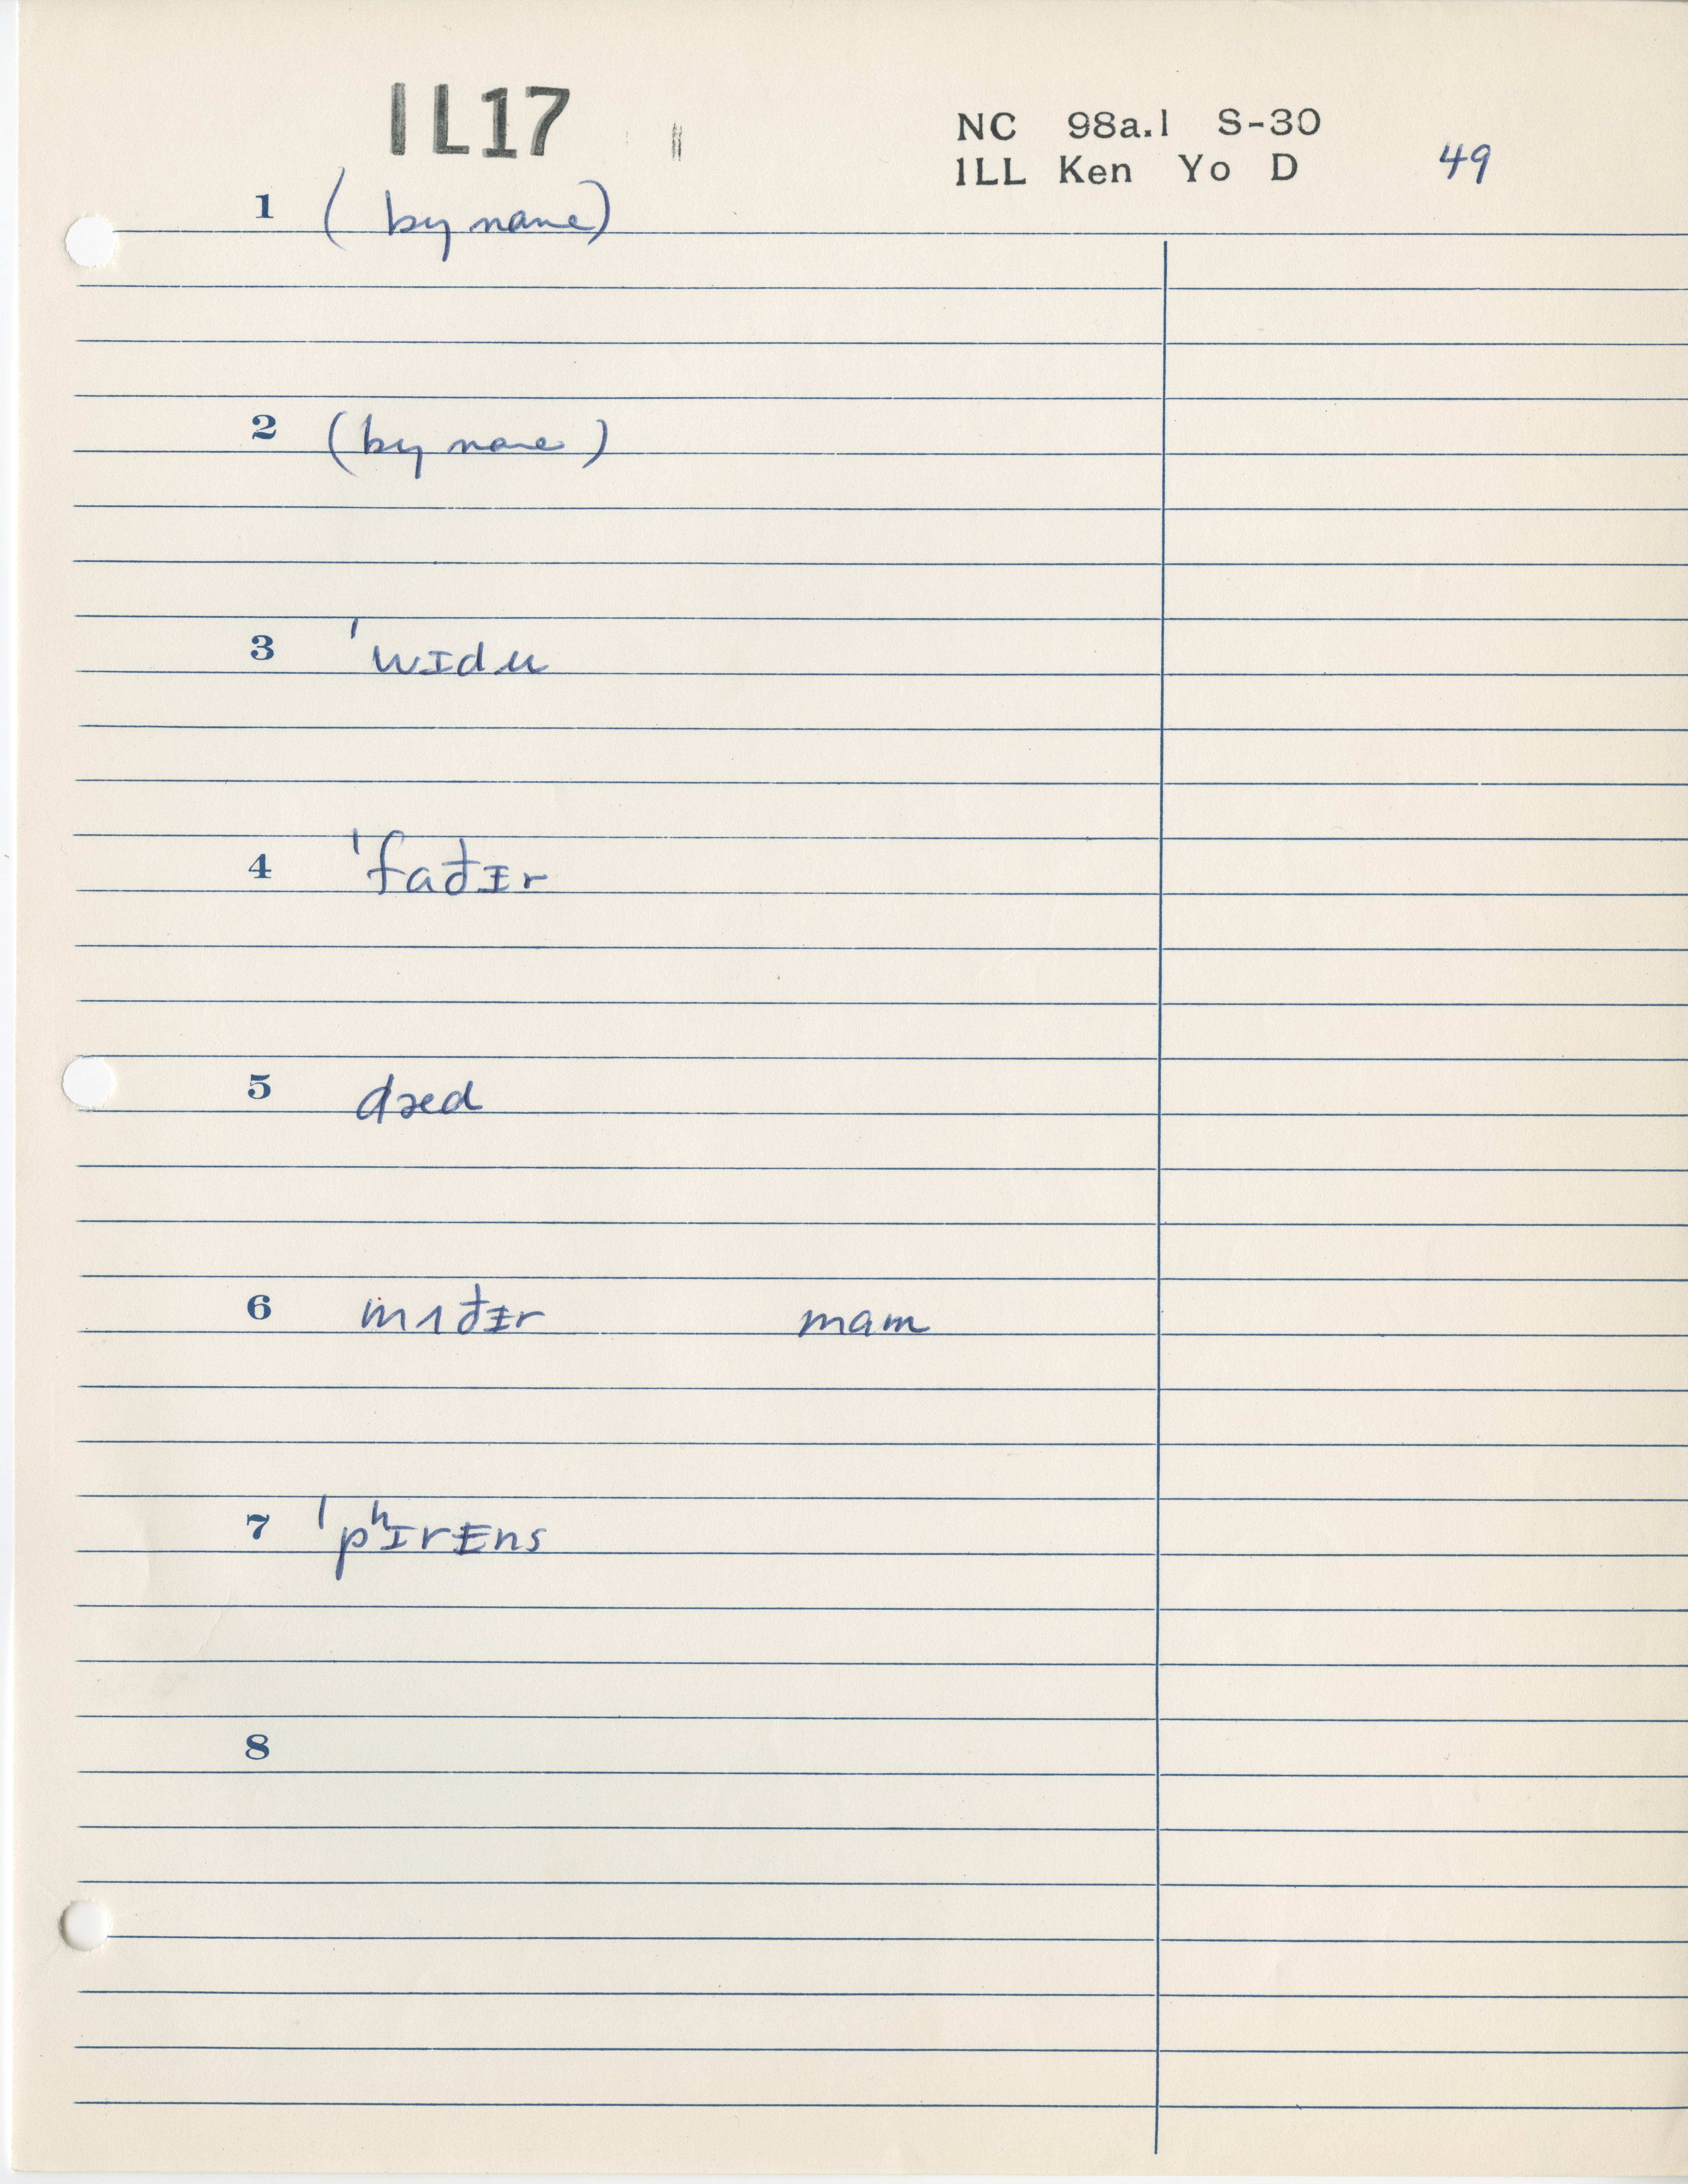 1L17
NC 98a.1 S-30
1LL Ken Yo D 49
1 (by name)
2 (by name)
3 'wɪdu
4 'fađɪr
5 dæd
6 mʌđɪr mam
7 'pʰɪrɛns
8